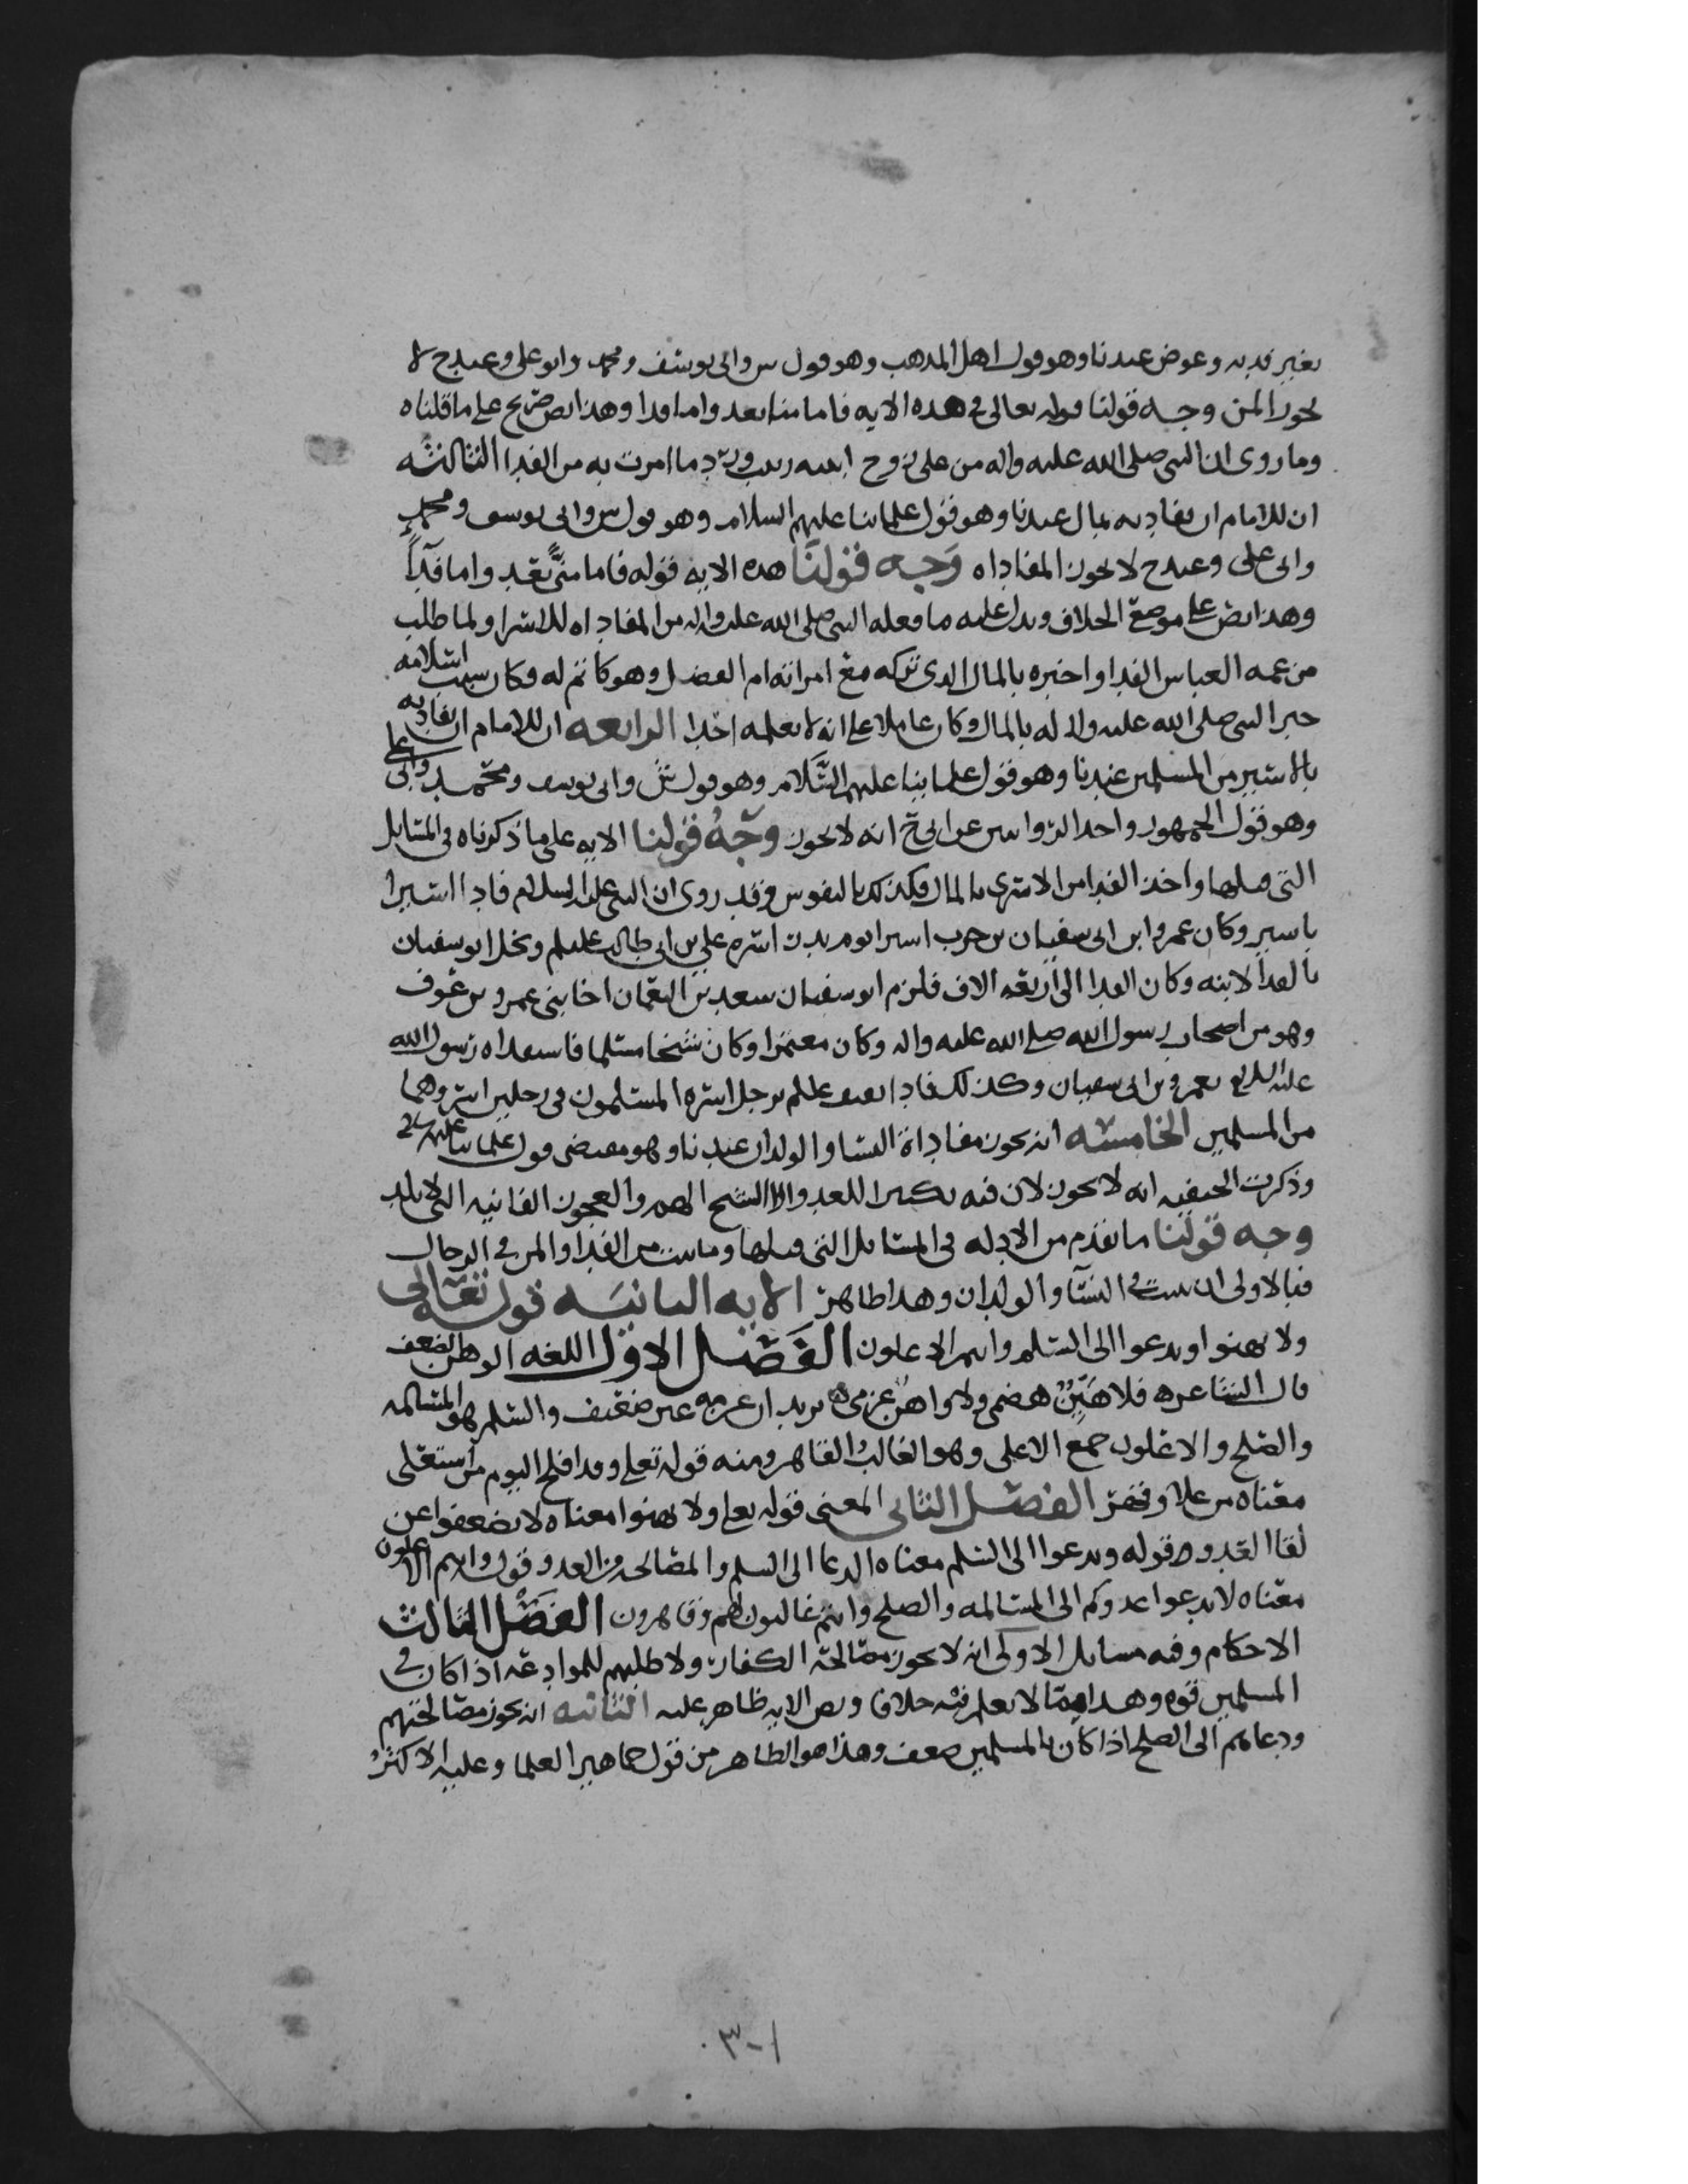 بغير فديه وعوض عندنا وهو قول اهل المذهب وهو قول س وابي يوسف ومحمد وابو علي وعند ح لا
يجوز المن وجه قولنا قوله تعالى في هذه الايه فاما منا بعد واما فدا وهذا نص صريح على ما قلناه
وما روي ان النبي صلى الله عليه واله من على زوج ابنته زينب ورد ما امرت به من الفدا الثالثه
ان للامام ان يفاديه بمال عندنا وهو قول علمائنا عليهم السلام وهو قول س وابي يوسف ومحمد
وابي علي وعند ح لا يجوز المفاداه وجه قولنا هذه الايه قوله فاما منًّا بعد واما فدآً
وهذا نص على موضع الخلاف ويدل عليه ما فعله النبي صلى الله عليه واله من المفاداه للاسرا ولما طلب
من عمه العباس الفدا واخبره بالمال الذي تركه مع امراته ام الفضل وهو كاتم له وكان سبب اسلامه
خبر النبي صلى الله عليه واله له بالمال وكان عاملا على انه لا يعلمه احدا الرابعه ان للامام ان يفاديه
بالاسير من المسلمين عندنا وهو قول علمائنا عليهم السَّلام وهو قول ش وابي يوسف ومحمد وابي علي
وهو قول الجمهور واحد الروايتين عن ابي ح انه لا يجوز وجهُ قولنا الايه على ما ذكرناه في المسايل
التي قبلها واخذ الفدا من الاسرى بالمال فكذلك بالنفوس وقد روي ان النبي عليه السلام فادا اسيرا
باسير وكان عمرو ابن ابي سفيان بن حرب اسر ابو م بدر اسره علي بن ابي طالب عليلم وبخل ابو سفيان
بالفدا لابنه وكان الفدا الى اربعه الاف فلزم ابو سفيان سعد بن النعمان اخا بني عمرو بن عوف
وهو من اصحاب رسول الله صلى الله عليه واله وكان معتمرا وكان شيخا مسلما فاستفداه رسول الله
عليه السلام بعمرو بن ابي سفيان وكذلك فادا عليلم برجل اسره المسلمون في رجلين اسروهما
من المسلمين الخامسه انه يجوز مفاداة النسا والولدان عندنا وهو مقتضى قول علمائنا عليهم سلم
وذكرت الحنفيه انه لا يجوز لان فيه تكثيرا للعدو والا الشيخ الهم والعجوز الفانيه التي لا تلد
وجه قولنا ما تقدم من الادله في المسايل التي قبلها وما ثبت من الفدا والمن في الرجال
فبالاولى ان يثبت في النسآ والولدان وهذا ظاهر الايه الثانيه قوله تعالى
ولا تهنوا وتدعوا الى السلم وانتم الاعلون الفَصْل الاول اللغه الوهن الضعف
قال الشاعر ه فلا هَيّنٌ هضمي ولا واهنٌ عزمي ه يريد ان عزمه غير ضعيف والسلم هو المسالمه
والصلح والاعلون جمع الاعلى وهو الغالب القاهر ومنه قوله تعلى وقد افلح اليوم من استعلى
معناه من علا وقهر الفصل الثاني المعنى قوله تعلى ولا تهنوا معناه لا تضعفوا عن
لقا العدو ه قوله وتدعوا الى السلم معناه الدعا الى السلم والمصالحه من العدو وقوله وانتم الاعلون
معناه لا تدعوا عدوكم الى المسالمه والصلح وانتم غالبون لهم وقاهرون الفصل الثالث
الاحكام وفيه مسايل الاولى انه لا يجوز مصالحة الكفار ولا طلبهم للموادعه اذا كان في
المسلمين قوه وهذا مما لا يعلم فيه خلاف ونص الايه ظاهر عليه الثانيه انه يجوز مصالحتهم
ودعاهم الى الصلح اذا كان بالمسلمين ضعف وهذا هو الظاهر من قول جماهير العلما وعليه الاكثر
٣٠١